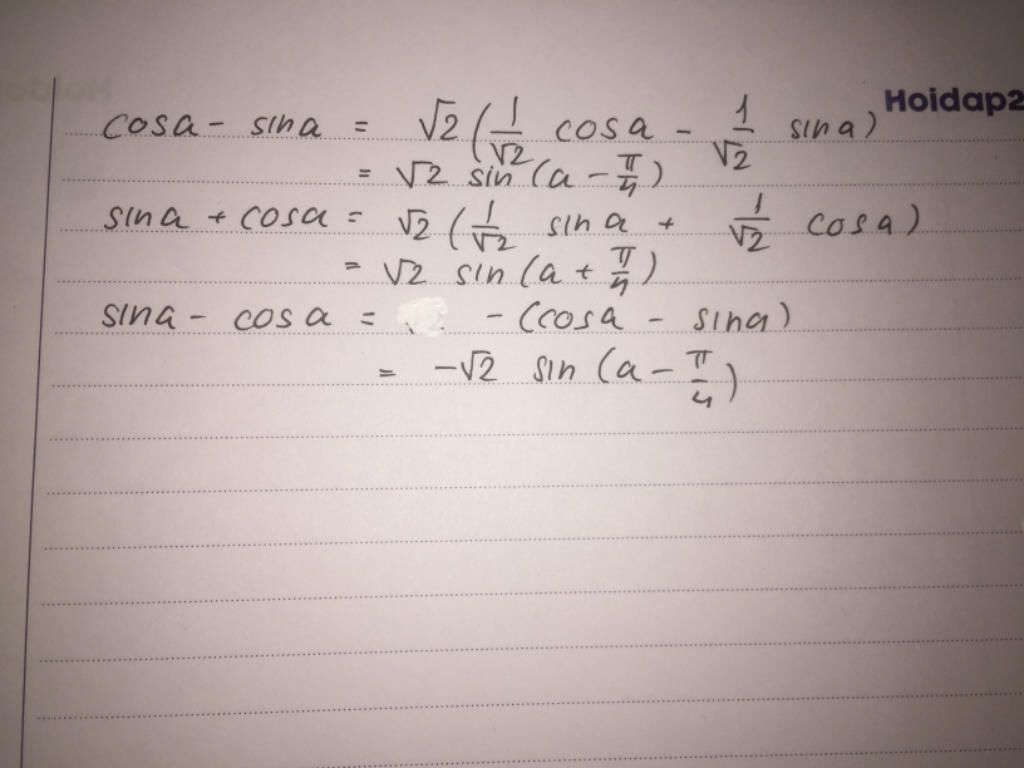 Hoidap2
cosa - sina = √2 (1/√2 cosa - 1/√2 sina)
= √2 sin(a - π/4)
sina + cosa = √2 (1/√2 sina + 1/√2 cosa)
= √2 sin(a + π/4)
sina - cosa = - (cosa - sina)
= -√2 sin(a - π/4)